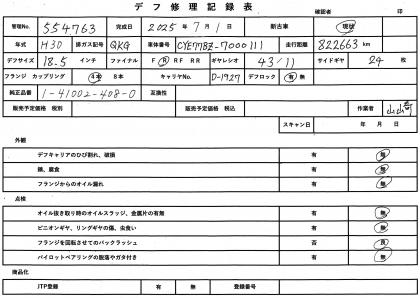 デフ修理記録表
確認者 印
管理No. 554763 完成日 2025年 7月 1日 新古車 現状
年式 H30 排ガス記号 QKG 車体番号 CYE77BZ-7000111 走行距離 822663 km
デフサイズ 18.5 インチ ファイナル F R RF RR ギヤレシオ 43/11 サイドギヤ 24 枚
フランジ カップリング 4本 8本 キャリヤNo. D-1927 デフロック 有 無
純正品番 1-41002-408-0 互換性
販売予定価格 税別 販売予定価格 税込 作業者
スキャン日 年 月 日
外観
デフキャリアのひび割れ、破損 有 無
錆、腐食 有 無
フランジからのオイル漏れ 有 無
点検
オイル抜き取り時のオイルスラッジ、金属片の有無 有 無
ピニオンギヤ、リングギヤの傷、虫食い 有 無
フランジを回転させてのバックラッシュ 否 良
パイロットベアリングの脱落やガタ付き 有 無
商品化
JTP登録 有 無 登録番号